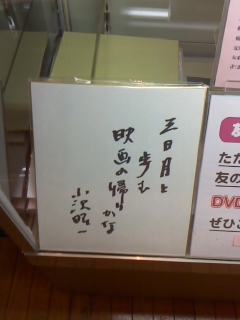 三日月と
歩む
映画の帰りかな
小沢昭一
友
ただ
友の
DVD
ぜひご